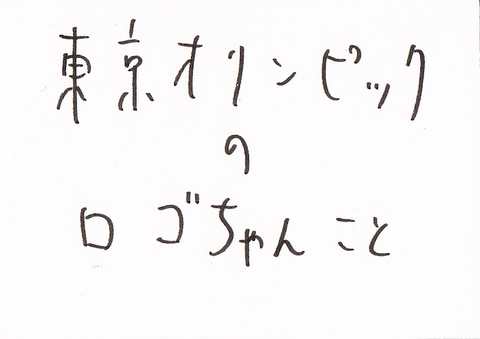 東京オリンピック
の
ロゴちゃんこと